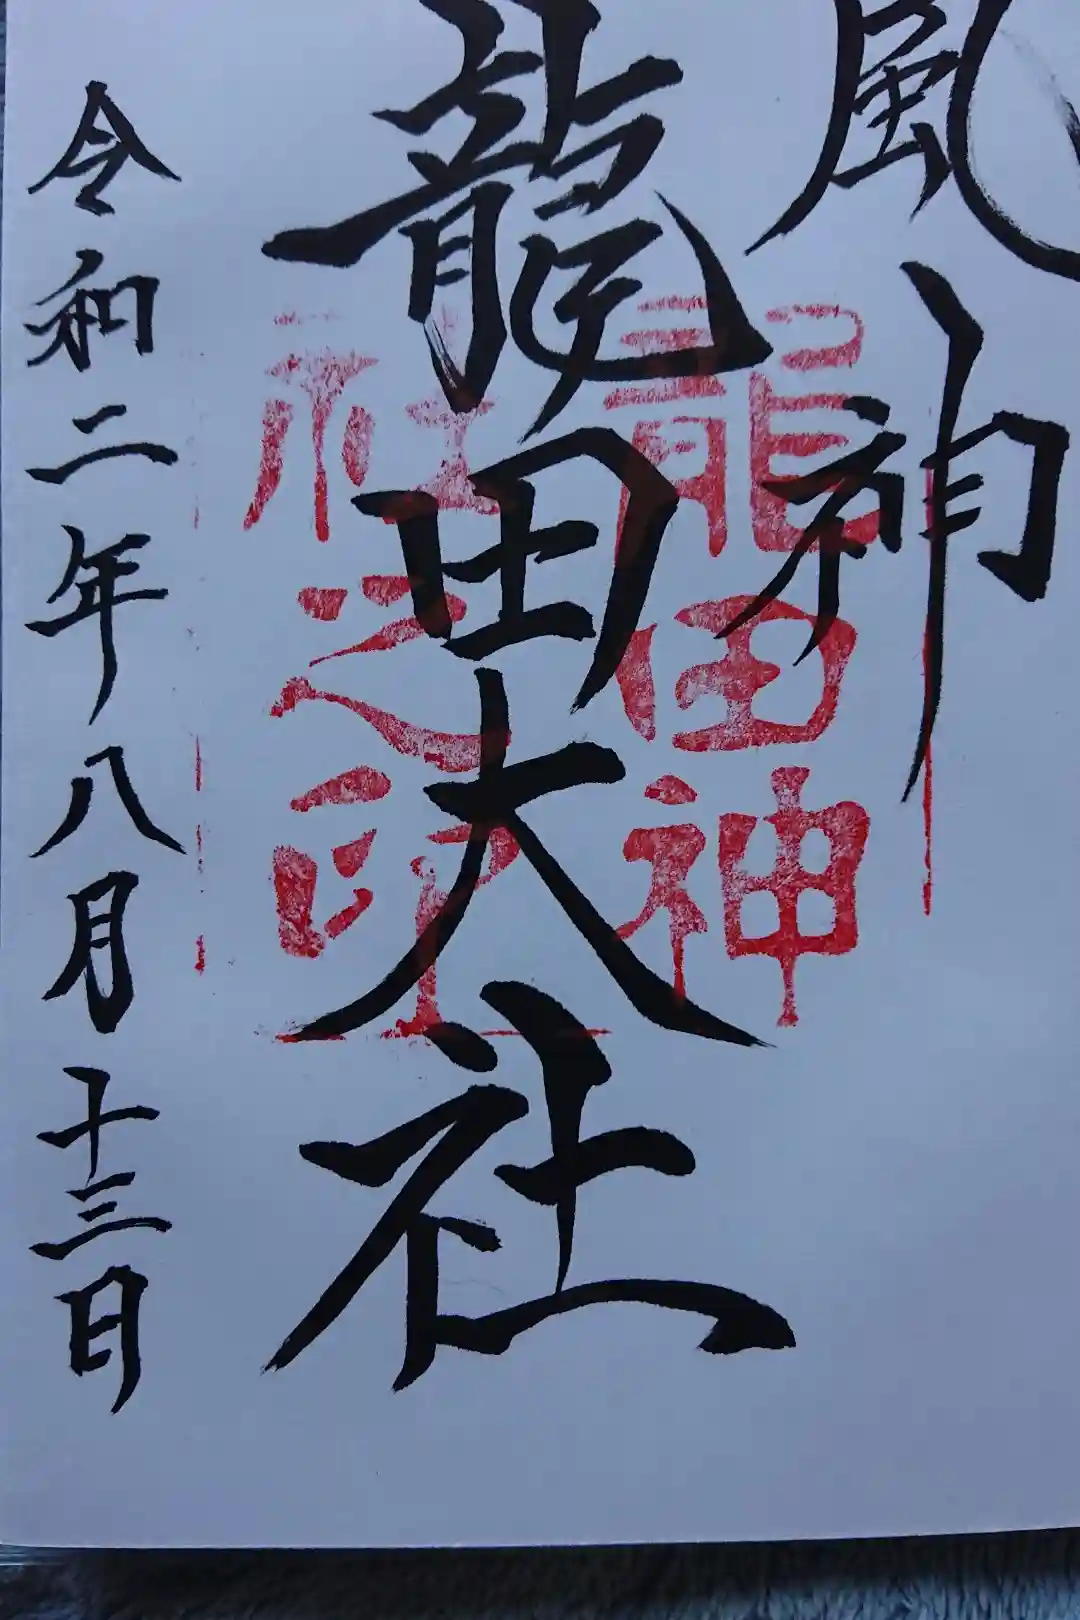 風神
龍田大社
令和二年八月十三日
龍田神
社之印